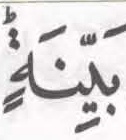 بَيِّنَةٍؕ